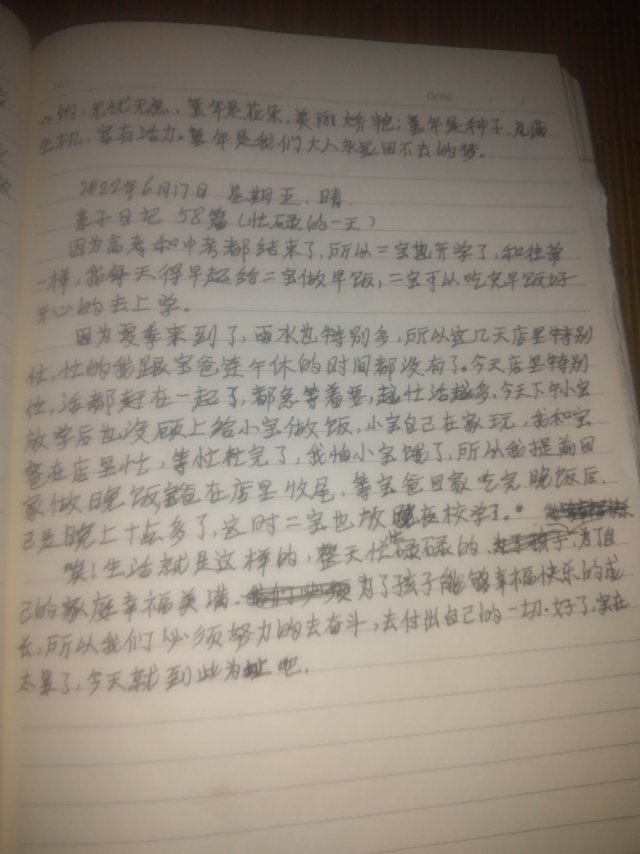 No
Date / /
心的，无忧无虑，童年是花朵，美丽娇艳；童年是种子，充满
生机，富有活力。童年是我们大人永远回不去的梦。
2022年6月17日 星期五．晴．
亲子日记 58篇（忙碌的一天）
因为高考和中考都结束了，所以二宝也开学了，和往常
一样，我每天得早起给二宝做早饭，二宝可以吃完早饭好
开心的去上学。
因为夏季来到了，雨水也特别多，所以这几天店里特别
忙，忙的我跟宝爸连午休的时间都没有了。今天店里特别
忙，活都赶在一起了，都急等着要，越忙活越多。今天下午小宝
放学后也没顾上给小宝做饭，小宝自己在家玩，我和宝
爸在店里忙，等忙完了，我怕小宝饿了，所以我提前回
家做晚饭宝爸在店里收尾，等宝爸回家吃完晚饭后．
已是晚上十点多了，这时二宝也放学了。
唉！生活就是这样的，整天忙忙碌碌的．为了自
己的家庭幸福美满．为了孩子能够幸福快乐的成
长，所以我们必须努力的去奋斗，去付出自己的一切．好了，实在
太累了，今天就到此为止吧．